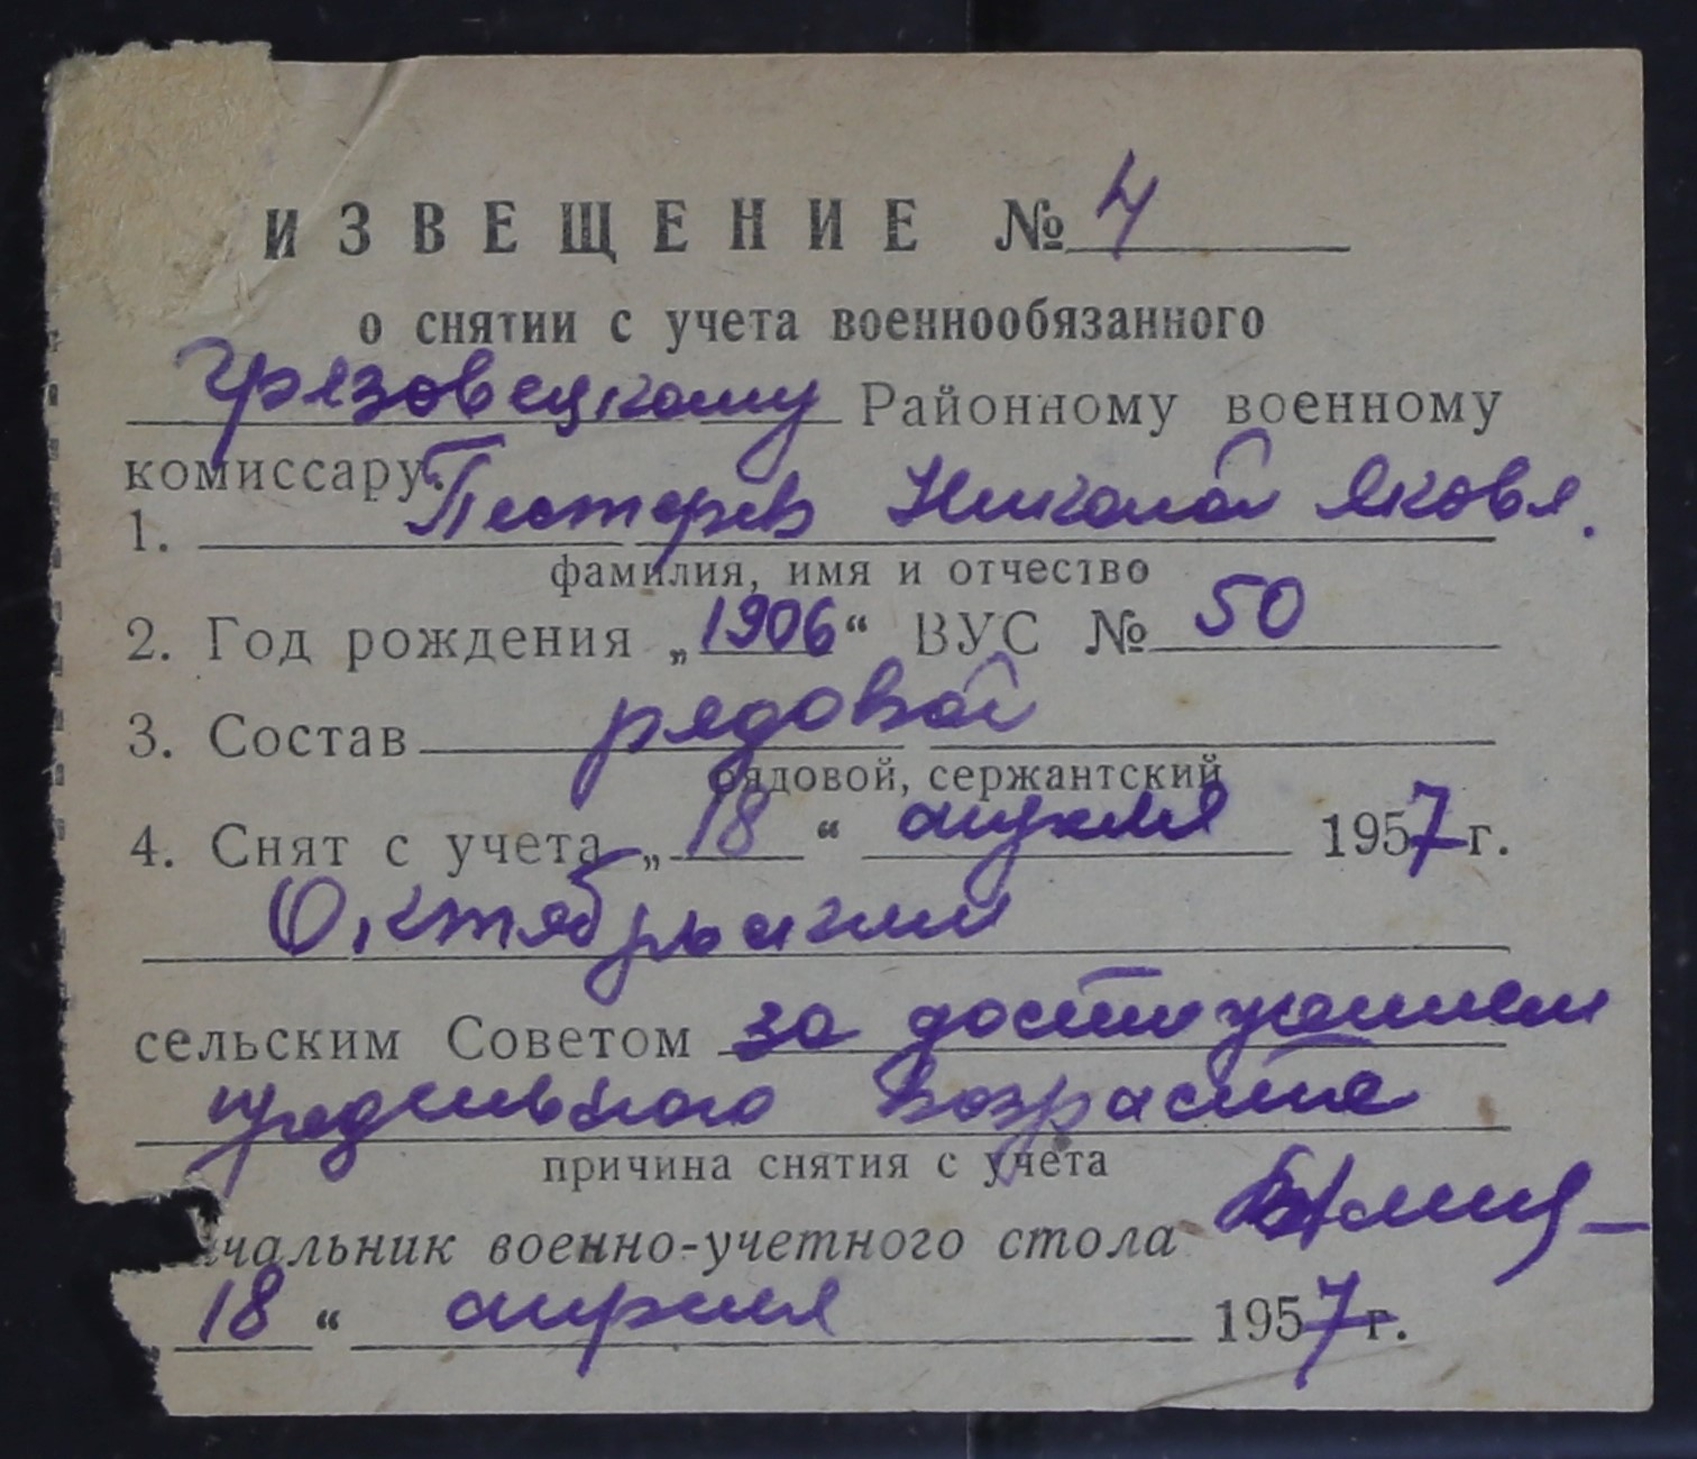 ИЗВЕЩЕНИЕ № 4
о снятии с учета военнообязанного
Грязовецкому Районному военному
комиссару.
1. Пестерев Николай Яковл.
фамилия, имя и отчество
2. Год рождения „1906“ ВУС № 50
3. Состав рядовой
рядовой, сержантский
4. Снят с учета „18“ апреля 1957 г.
Октябрьским
сельским Советом за достижением
предельного возраста
причина снятия с учета
чальник военно-учетного стола
18“ апреля 1957 г.